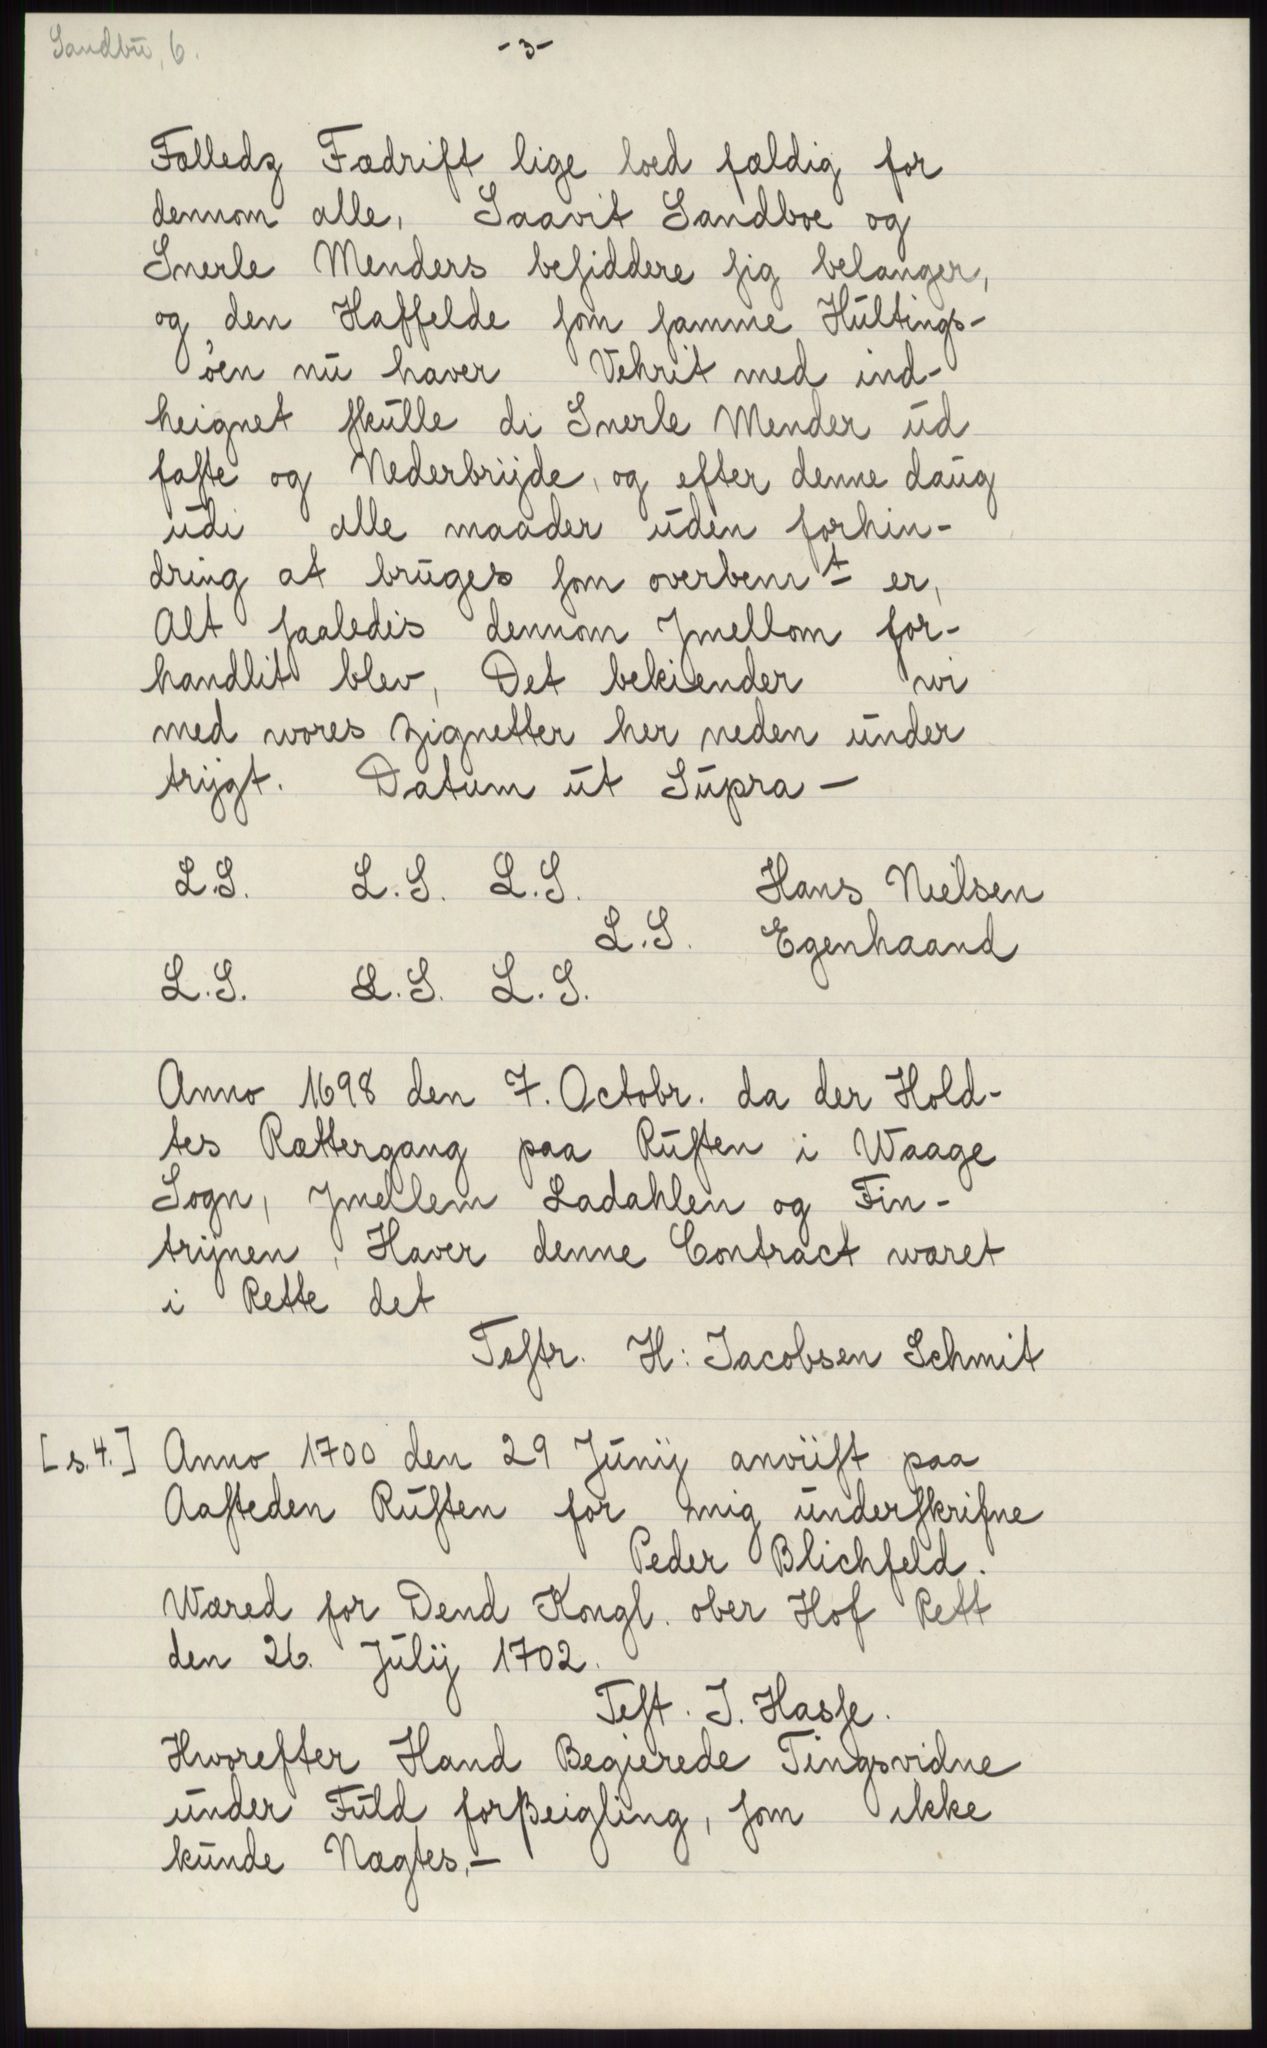 Sandbu, 6.
-3-
Fælledz Fædrift lige loed fældig for
dennom alle, Saavit Sandboe og
Snerle Menders besiddere sig belanger,
og den Haffelde som samme Hultings-
øen nu haver Vehrit med ind-
heignet skulle di Snerle Mender ud
faste og Nederbrijde, og efter denne daug
udi alle maader uden forhin-
dring at bruges som overbemt er,
Alt saaledis dennom Jmellom for-
handlit blev, Det bekiender wi
med wores Zignetter her neden under
trijgt. Datum ut Supra —
L.S. L.S. L.S. Hans Nielsen
L.S. Egenhaand
L.S. L.S. L.S.
Anno 1698 den 7. Octobr. da der Hold-
tes Rættergang paa Rusten i Waage
Sogn, Jmellem Ladahlen og Fin-
trijnen, Haver denne Contract wæret
i Rette det
Testr. H: Jacobsen Schmit
[s.4.] Anno 1700 den 29 Junij anviist paa
Aasteden Rusten for mig underskrifne
Peder Blichfeld.
Wæred for Dend Kongl. ober Hof Rett
den 26. Julij 1702.
Test. J. Hasse.
Hworefter Hand Begierede Tingsvidne
under Fuld forßeigling, som ikke
kunde Nægtes,—